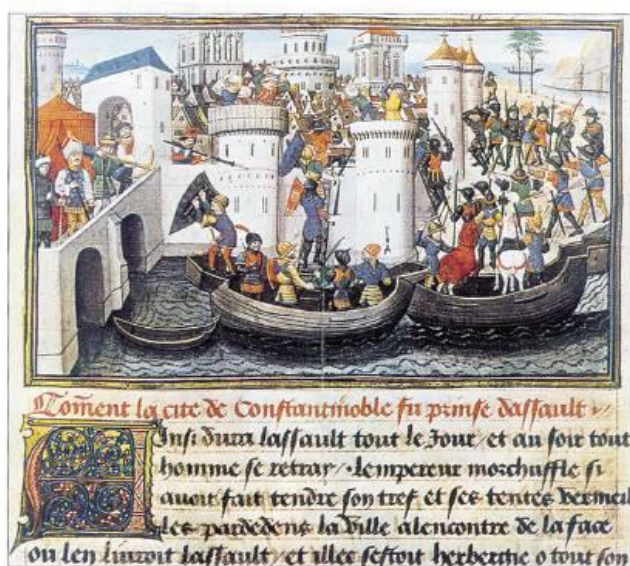 Coment la cite de Constantinoble fu prinse dassault
Ainsi dura lassault tout le Jour / et au soir tout
homme se retray / · lempereur morchuffle si
auoit fait tendre son tref et ses tentes vermeil
les pardedens la ville alencontre de la face
ou len liuroit lassault / et illec sestoit herbergie o tout son